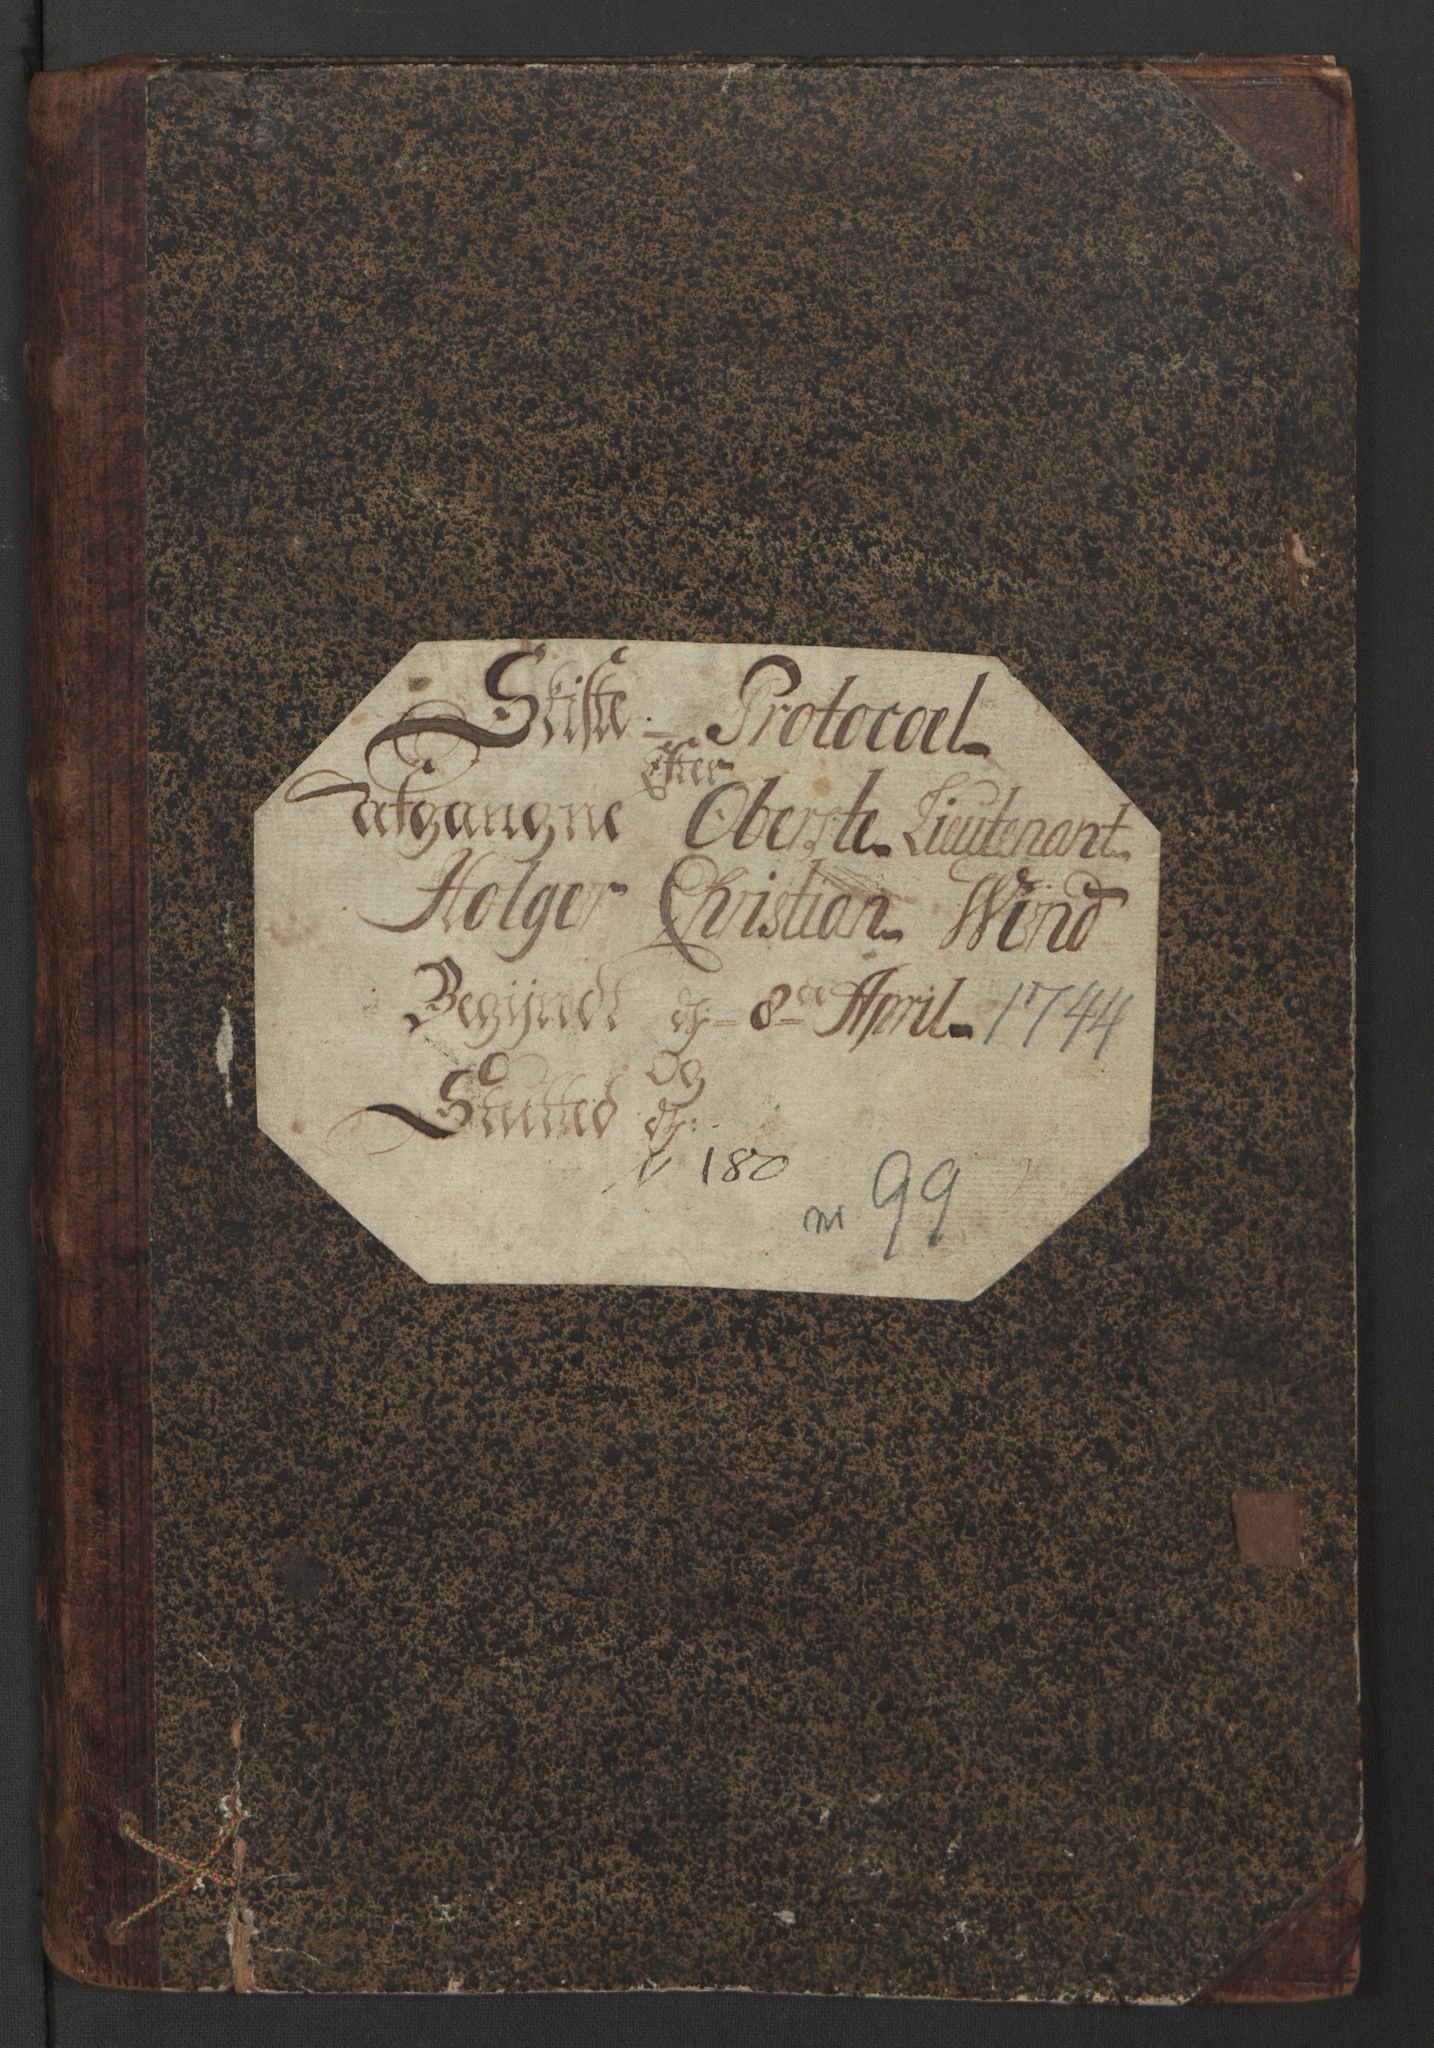 Skifte - Protocoel
Efter
Afgangne Oberste Lieutenant
Holger Christian Wind
Begÿndt d: 8de April 1744
Og
Slutted d:
180
nr. 99